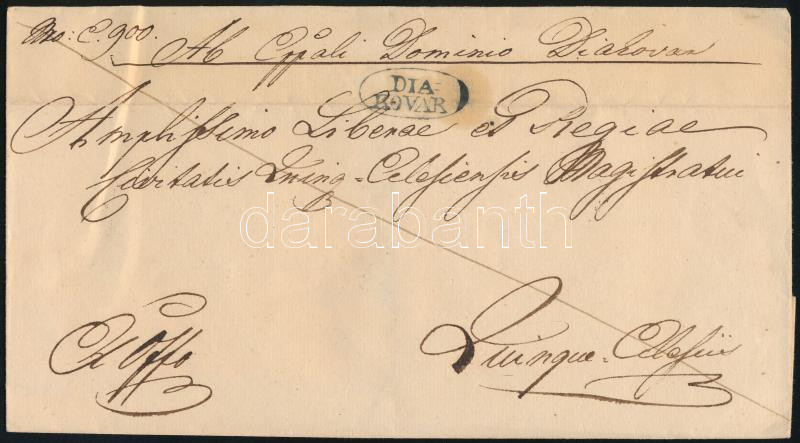 Nro: C. 900.
Ab Eppali Dominio Diakovar
DIA-
KOVAR
Amplissimo Liberae et Regiae
Civitatis Quinq-Eclesiensis Magistratui
darabanth
Ex Offo
Quinque-Eclesiis